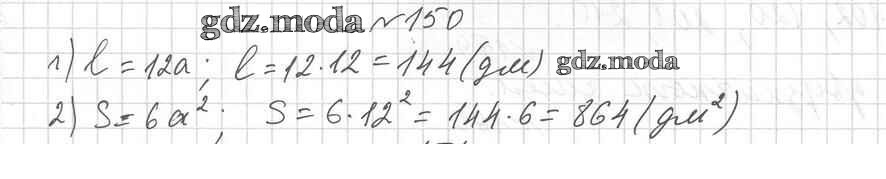 gdz.moda №150
1) l = 12a; l = 12·12 = 144 (дм) gdz.moda
2) S = 6a²; S = 6·12² = 144·6 = 864 (дм²)